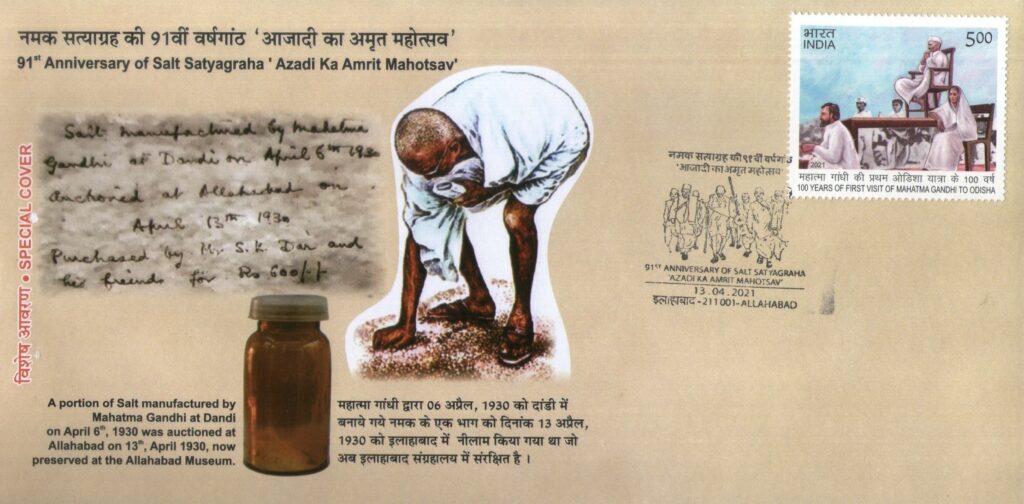 नमक सत्याग्रह की 91वीं वर्षगांठ 'आजादी का अमृत महोत्सव'
91st Anniversary of Salt Satyagraha ' Azadi Ka Amrit Mahotsav'
विशेष आवरण • SPECIAL COVER
Salt manufactured by Mahatma
Gandhi at Dandi on April 6th 1930
Auctioned at Allahabad on
April 13th 1930
Purchased by Mr. S.K. Dar and
his friends for Rs 600/-/-
A portion of Salt manufactured by
Mahatma Gandhi at Dandi
on April 6th, 1930 was auctioned at
Allahabad on 13th, April 1930, now
preserved at the Allahabad Museum.
महात्मा गांधी द्वारा 06 अप्रैल, 1930 को दांडी में
बनाये गये नमक के एक भाग को दिनांक 13 अप्रैल,
1930 को इलाहाबाद में नीलाम किया गया था जो
अब इलाहाबाद संग्रहालय में संरक्षित है ।
भारत
INDIA
500
2021
महात्मा गांधी की प्रथम ओडिशा यात्रा के 100 वर्ष
100 YEARS OF FIRST VISIT OF MAHATMA GANDHI TO ODISHA
नमक सत्याग्रह की ९१वीं वर्षगांठ
'आजादी का अमृत महोत्सव'
91ST ANNIVERSARY OF SALT SATYAGRAHA
'AZADI KA AMRIT MAHOTSAV'
13.04.2021
इलाहाबाद -211001-ALLAHABAD